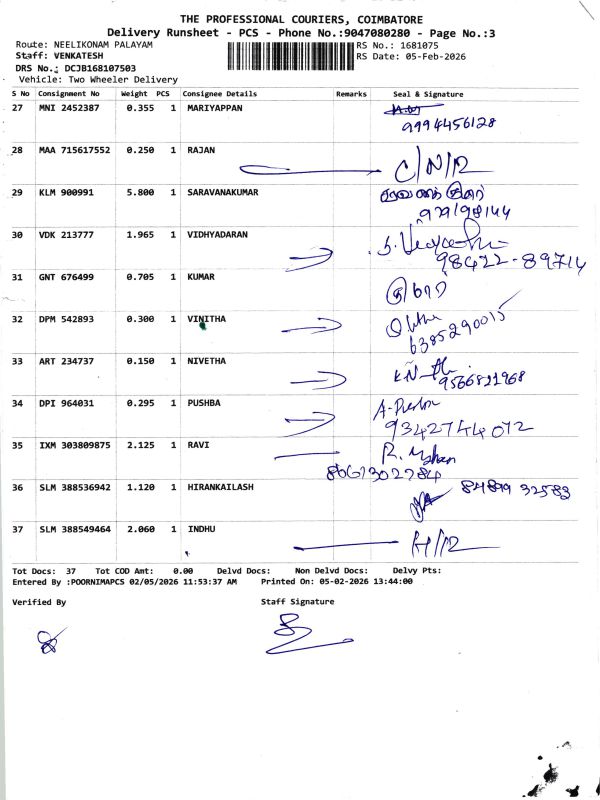 THE PROFESSIONAL COURIERS, COIMBATORE
Delivery Runsheet - PCS - Phone No.:9047080280 - Page No.:3
Route: NEELIKONAM PALAYAM RS No.: 1681075
Staff: VENKATESH RS Date: 05-Feb-2026
DRS No.: DCJB168107503
Vehicle: Two Wheeler Delivery
S No Consignment No Weight PCS Consignee Details Remarks Seal & Signature
27 MNI 2452387 0.355 1 MARIYAPPAN
9994456128
28 MAA 715617552 0.250 1 RAJAN
C/N/R
29 KLM 900991 5.800 1 SARAVANAKUMAR
30 VDK 213777 1.965 1 VIDHYADARAN
98422-89714
31 GNT 676499 0.705 1 KUMAR
32 DPM 542893 0.300 1 VINITHA
6385290015
33 ART 234737 0.150 1 NIVETHA
34 DPI 964031 0.295 1 PUSHBA
9342744072
35 IXM 303809875 2.125 1 RAVI
R. Mohan
36 SLM 388536942 1.120 1 HIRANKAILASH
84899 32583
37 SLM 388549464 2.060 1 INDHU
Tot Docs: 37 Tot COD Amt: 0.00 Delvd Docs: Non Delvd Docs: Delvy Pts:
Entered By :POORNIMAPCS 02/05/2026 11:53:37 AM Printed On: 05-02-2026 13:44:00
Verified By Staff Signature